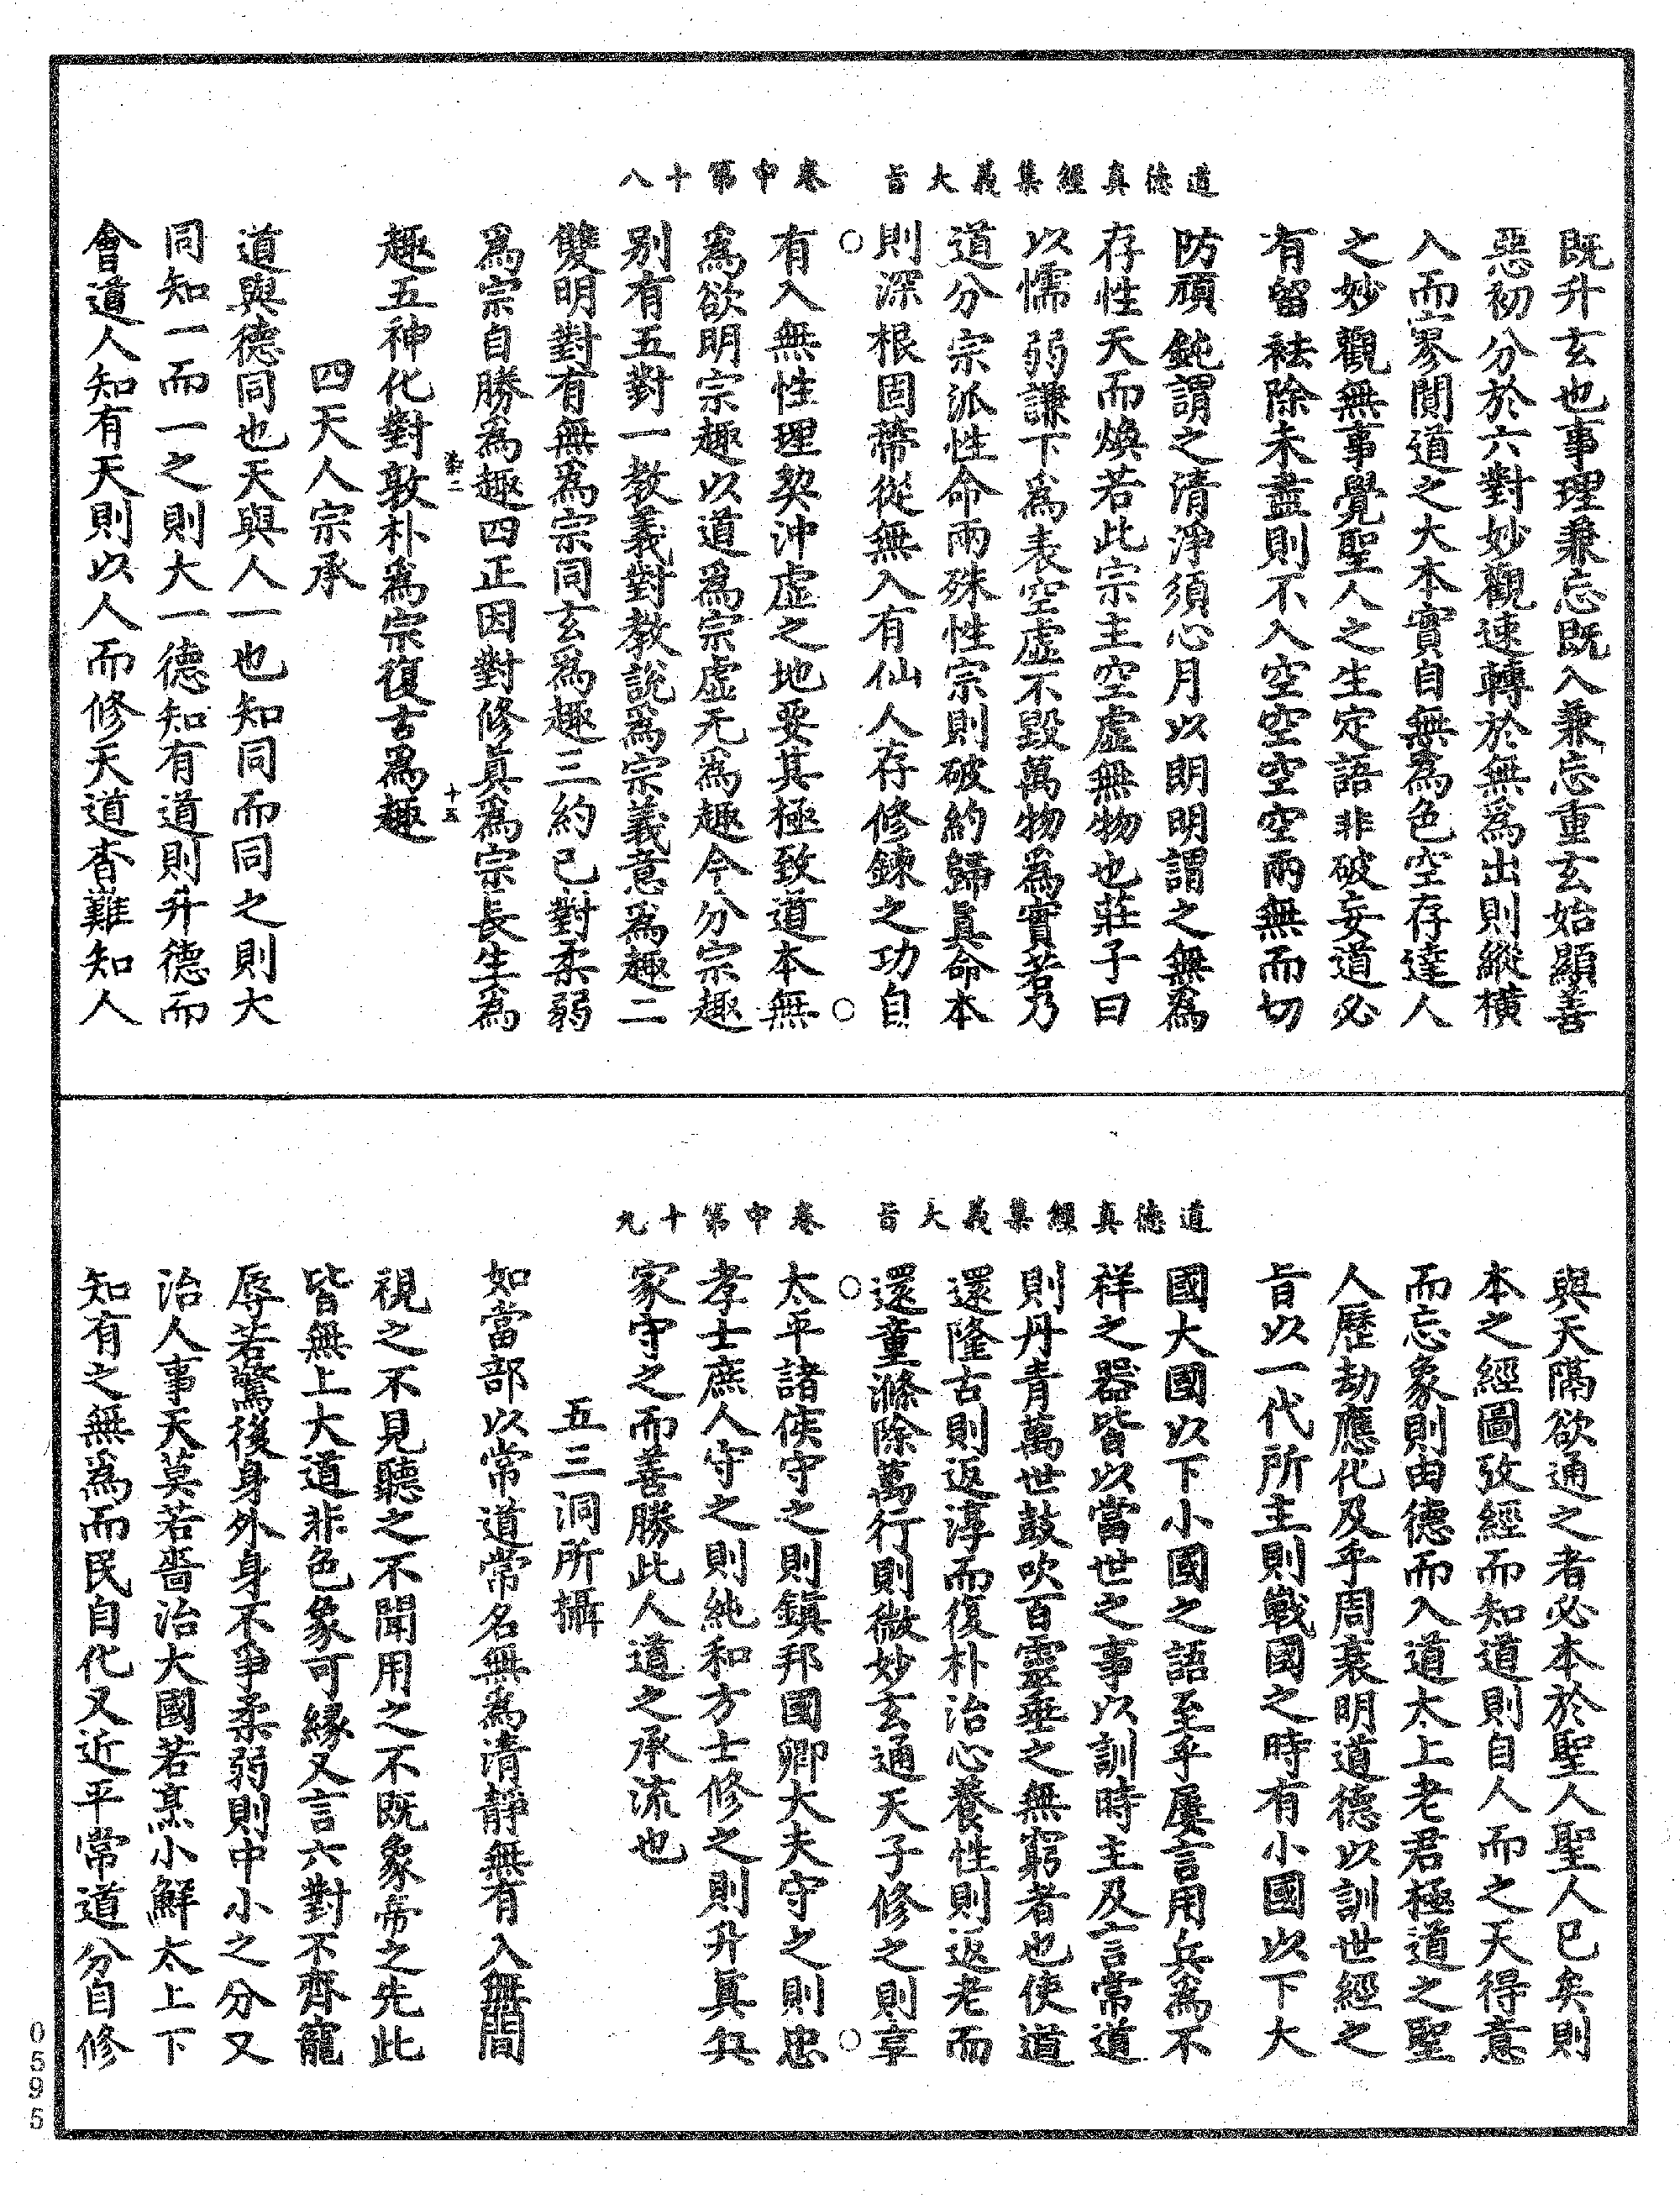 道德真經集義大旨　卷中第十八
既升玄也事理兼忘既入兼忘重玄始顯善
惡初分於六對妙觀速轉於無為出則縱橫
入而寥閴道之大本實自無為色空存達人
之妙觀無事覺聖人之生定語非破妄道必
有留袪除未盡則不入空空空空兩無而切
防頑鈍謂之清淨須心月以朗明謂之無為
存性天而煥若此宗主空虛無物也莊子曰
以懦弱謙下為表空虛不毀萬物為實若乃
道分宗派性命兩殊性宗則破約歸真命本
則深根固蒂從無入有仙人存修鍊之功自
有入無性理契沖虛之地要其極致道本無
為欲明宗趣以道為宗虛无為趣今分宗趣
別有五對一教義對教說為宗義意為趣二
雙明對有無為宗同玄為趣三約己對柔弱
為宗自勝為趣四正因對修真為宗長生為
十五
趣五神化對敦朴為宗復古為趣
四天人宗承
道與德同也天與人一也知同而同之則大
同知一而一之則大一德知有道則升德而
會道人知有天則以人而修天道杳難知人
道德真經集義大旨　卷中第十九
與天隔欲通之者必本於聖人聖人已矣則
本之經圖攷經而知道則自人而之天得意
而忘象則由德而入道太上老君極道之聖
人歷劫應化及乎周衰明道德以訓世經之
旨以一代所主則戰國之時有小國以下大
國大國以下小國之語至乎屢言用兵為不
祥之器皆以當世之事以訓時主及言常道
則丹青萬世鼓吹百靈垂之無窮者也使道
還隆古則返淳而復朴治心養性則返老而
還童滌除萬行則微妙玄通天子修之則享
太平諸侯守之則鎮邦國卿大夫守之則忠
孝士庶人守之則純和方士修之則升真兵
家守之而善勝此人道之承流也
五三洞所攝
如當部以常道常名無為清靜無有入無間
視之不見聽之不聞用之不既象帝之先此
皆無上大道非色象可緣又言六對不齊寵
辱若驚後身外身不爭柔弱則中小之分又
治人事天莫若嗇治大國若烹小鮮太上下
知有之無為而民自化又近平常道分自修
0595